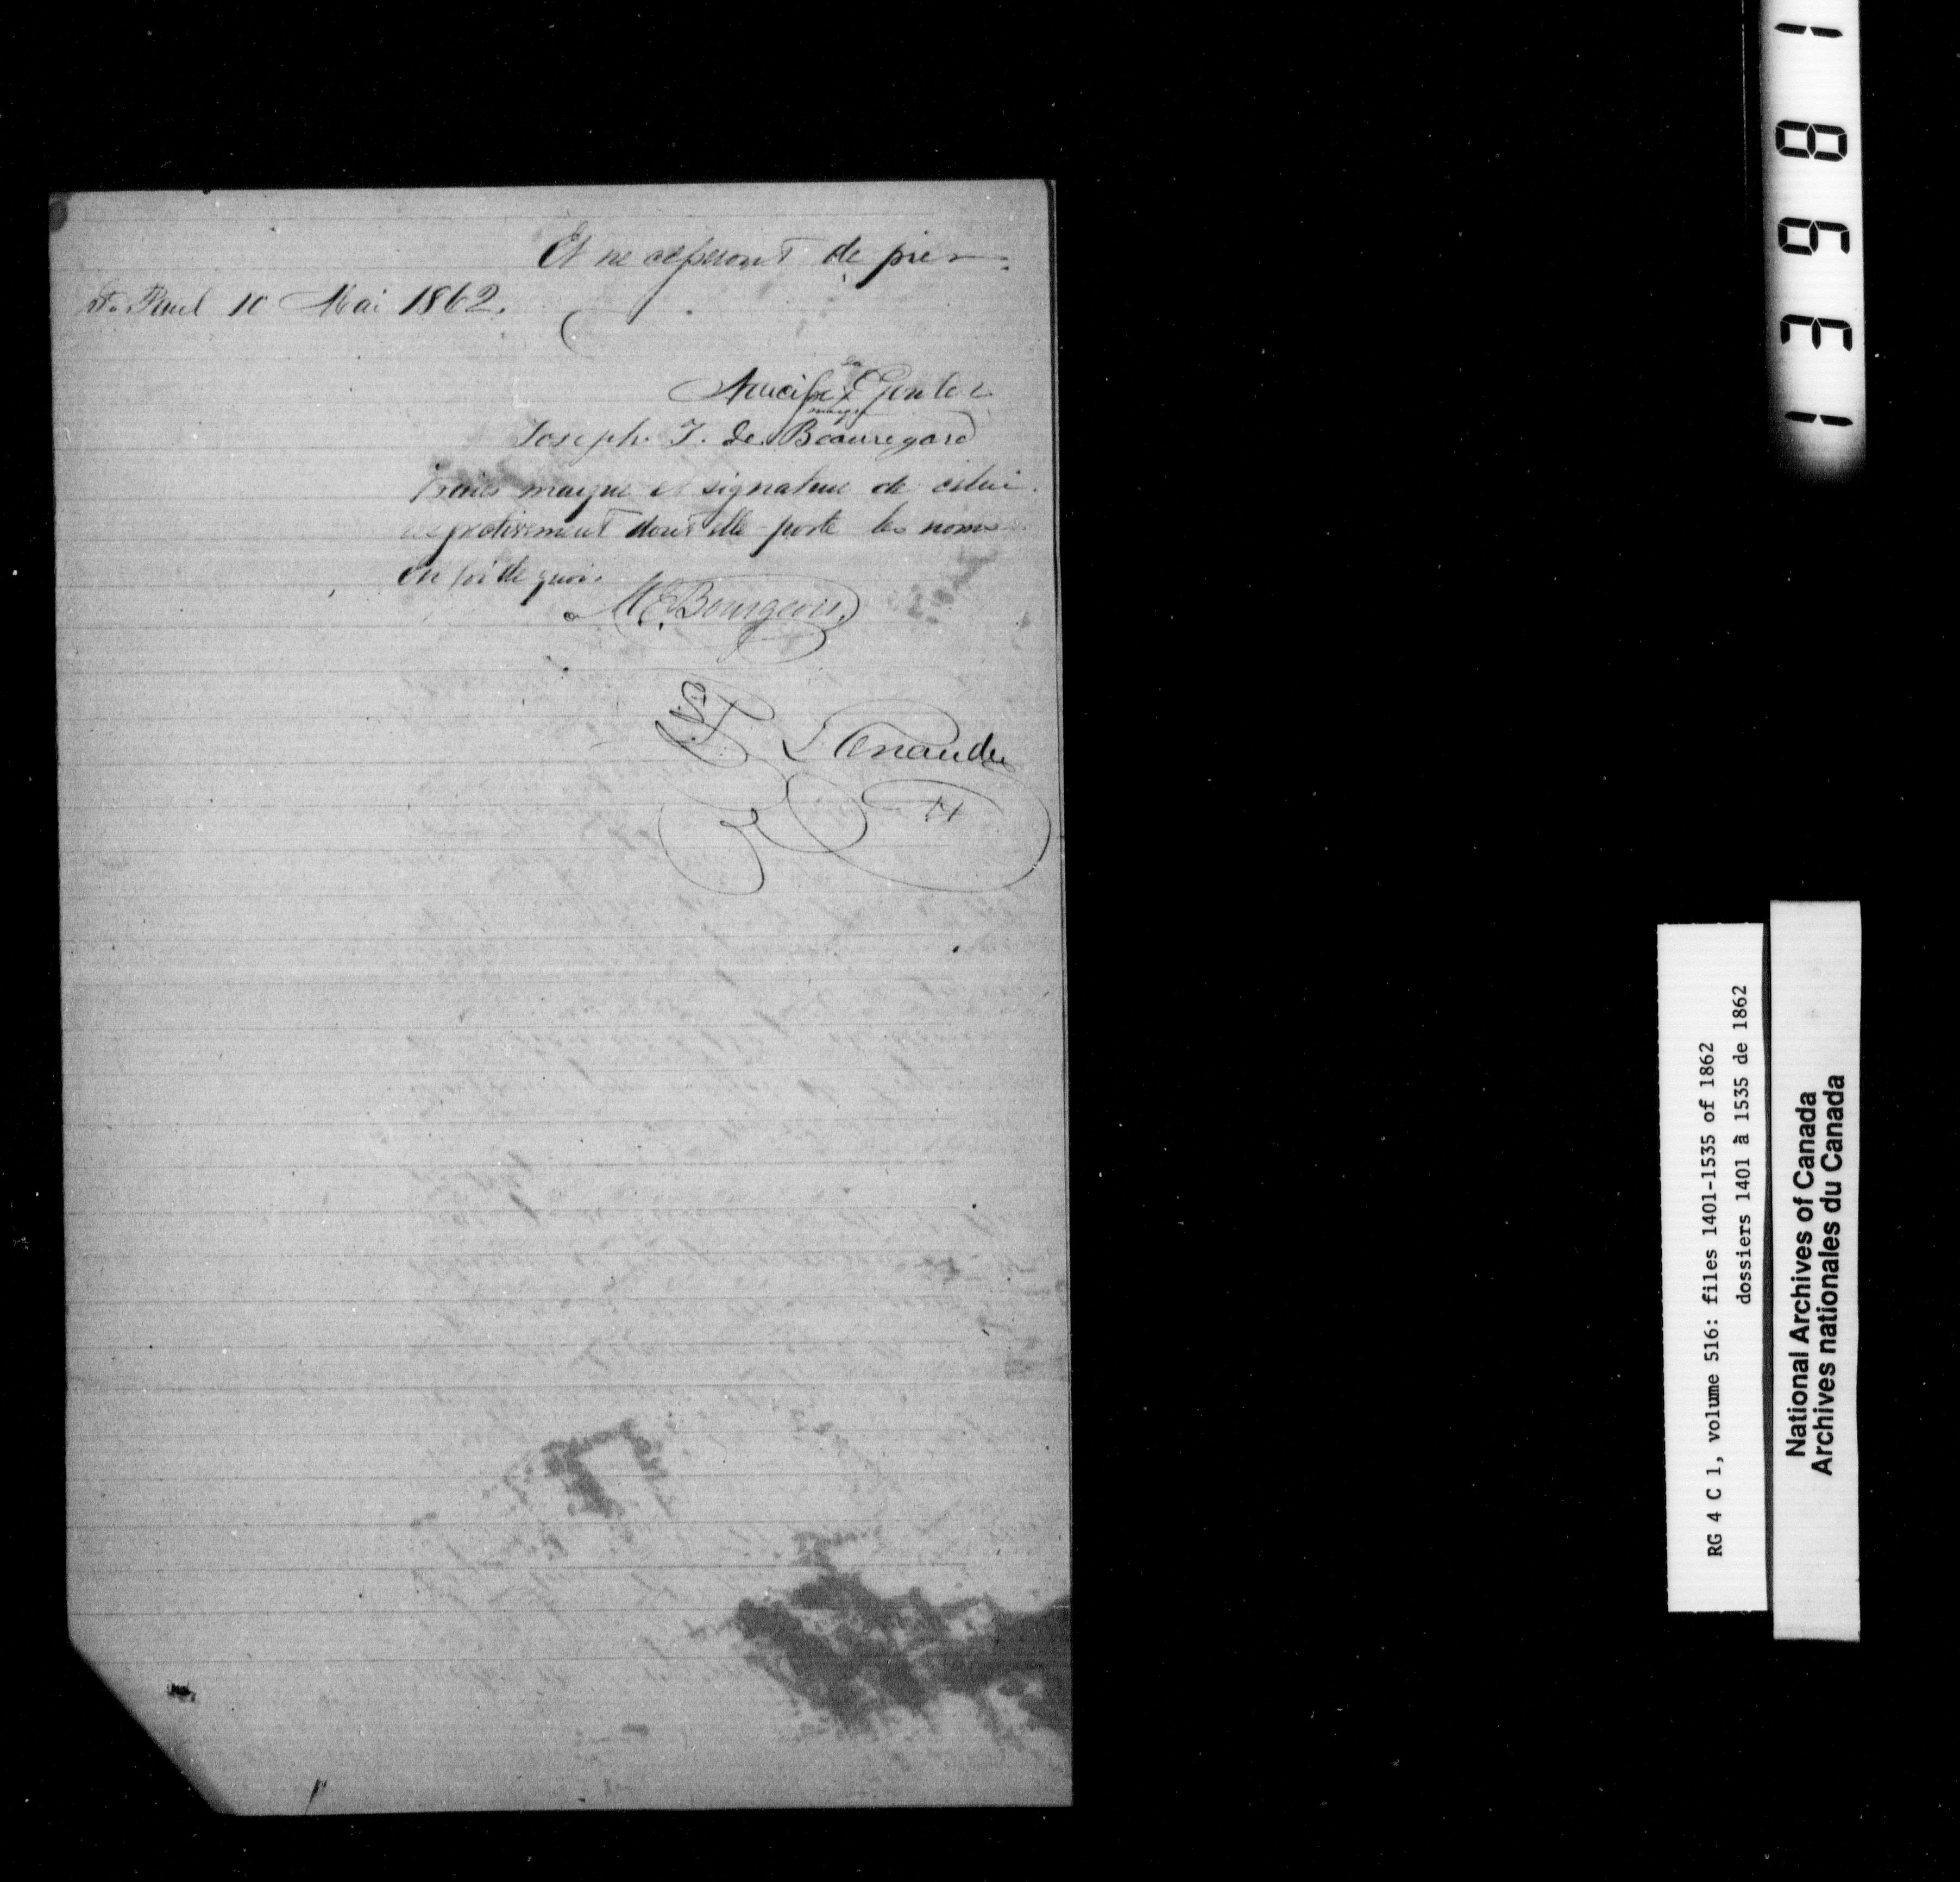 Et ne cesseront de prier
St. Paul 10 Mai 1862.
Narcisse sa X Gentes
marque
Joseph. T. de Beauregard
marque et signature de celui
respectivement dont elle porte les noms
En foi de quoi.
M. E. Bourgeois.
13981
RG 4 C 1, volume 516: files 1401-1535 of 1862
dossiers 1401 à 1535 de 1862
National Archives of Canada
Archives nationales du Canada